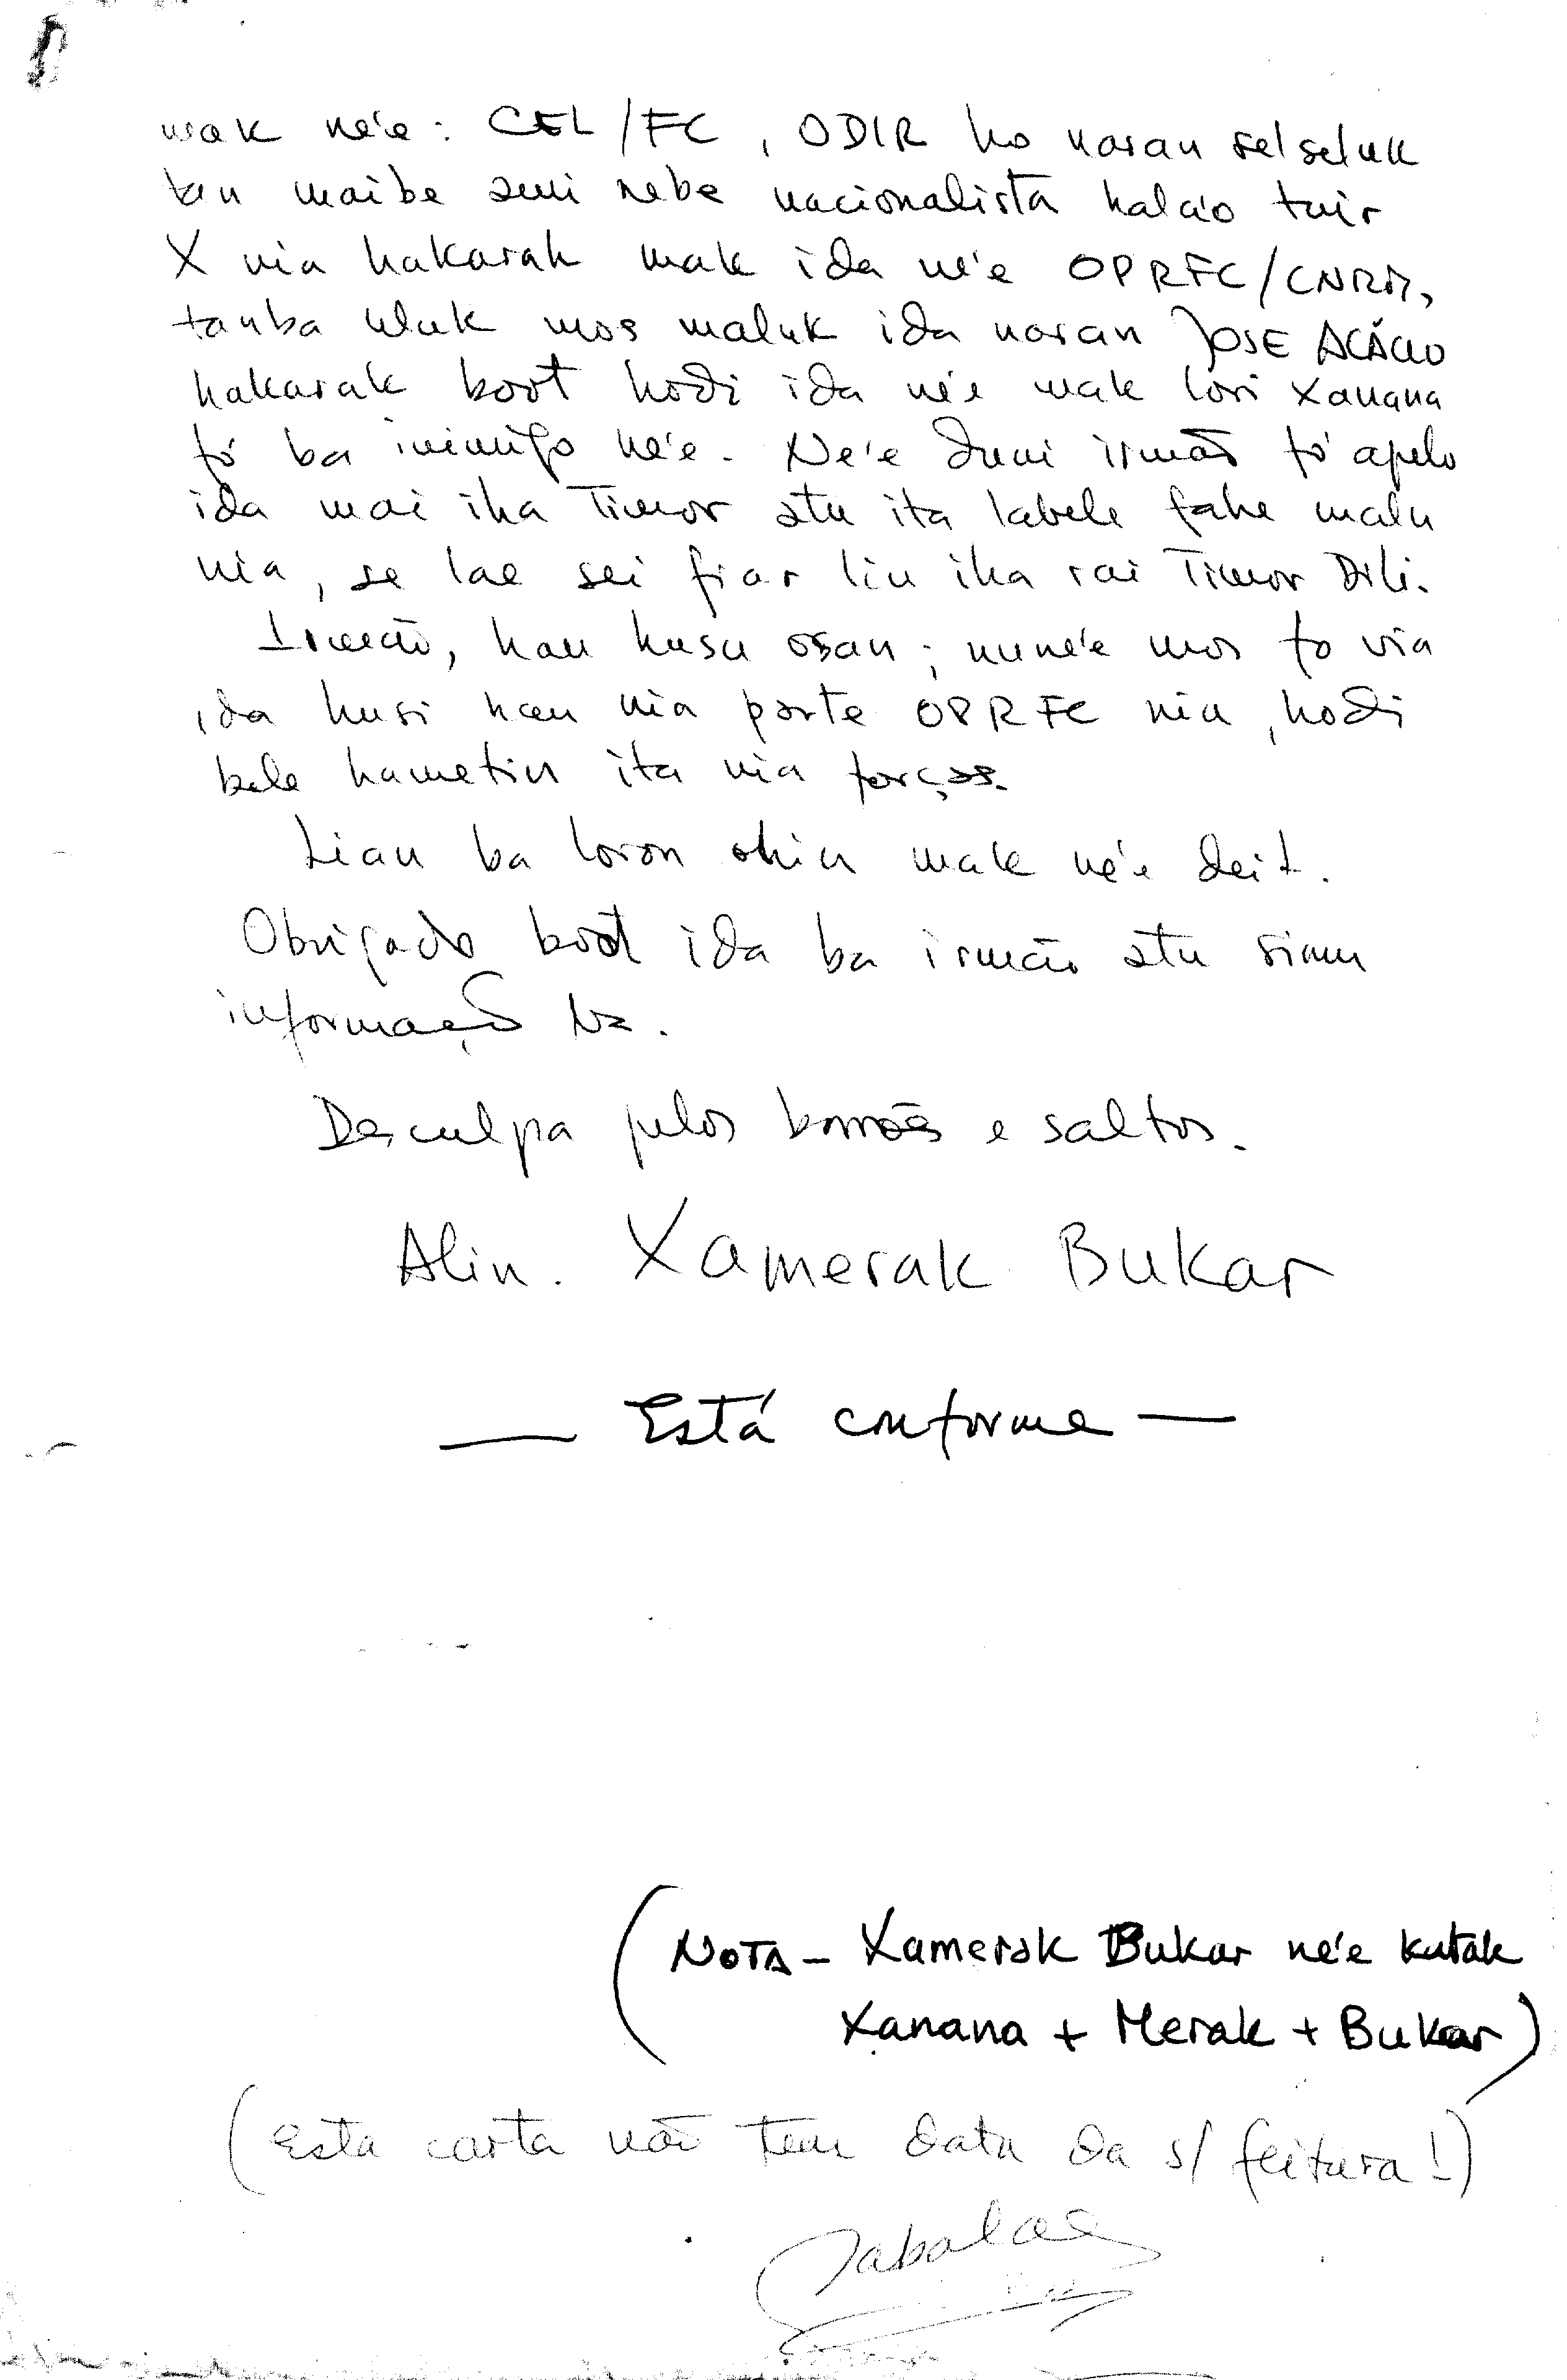 mak ne'e: CEL/FC, ODIR ho naran selseluk
tan maibe emi nebe nacionalista halao tuir
X nia hakarak mak ida ne'e OPRFC/CNRM,
tanba uluk mos maluk ida naran JOSE ACÁCIO
hakarak boot hodi ida ne'e mak lori Xanana
fó ba inimigo ne'e. Ne'e duni irmão fó apelo
ida mai iha Timor atu ita labele fahe malu
nia, se lae sei fiar liu iha rai Timor Dili.
Irmão, hau husu osan; nune'e mos fo via
ida husi hau nia parte OPRFC nia, hodi
bele hametin ita nia forças.
Lian ba loron ohin mak ne'e deit.
Obrigado boot ida ba irmão atu simu
informação
Desculpa pelos borrões e saltos.
Alin. Xamerak Bukar
— Está conforme —
(NOTA - Xamerak Bukar ne'e katak
Xanana + Merak + Bukar)
(Esta carta não tem data da s/ feitura!)